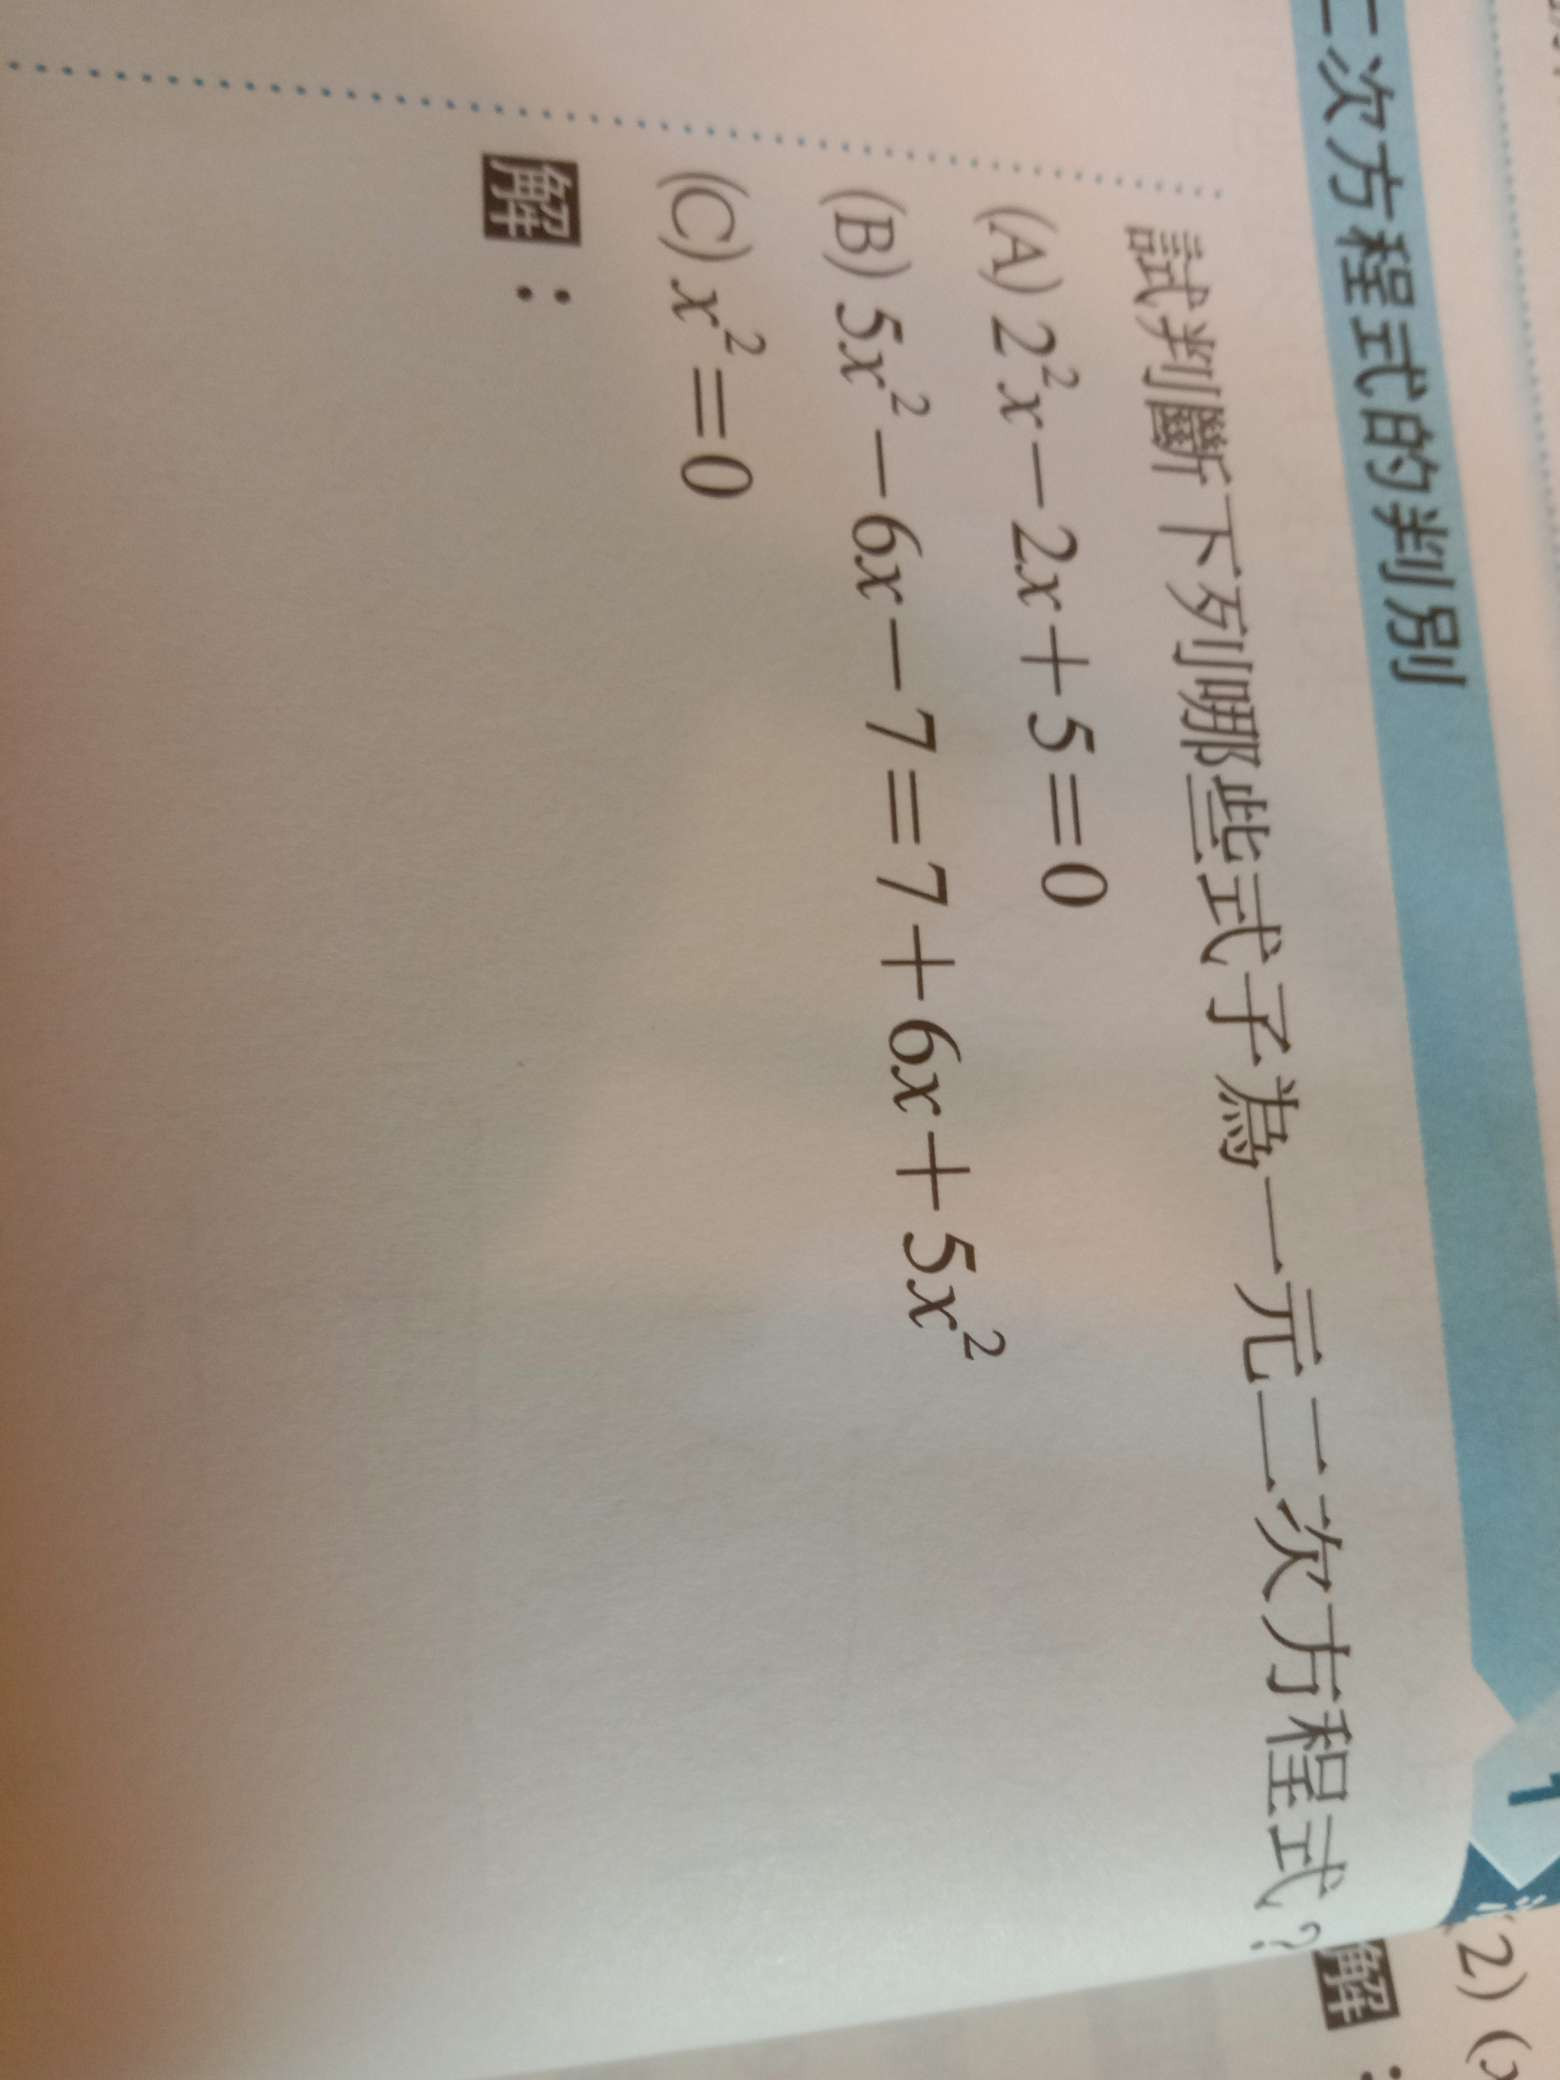 二次方程式的判別
試判斷下列哪些式子為一元二次方程式？
(A) 2²x－2x＋5＝0
(B) 5x²－6x－7＝7＋6x＋5x²
(C) x²＝0
解：
2) (x
解：